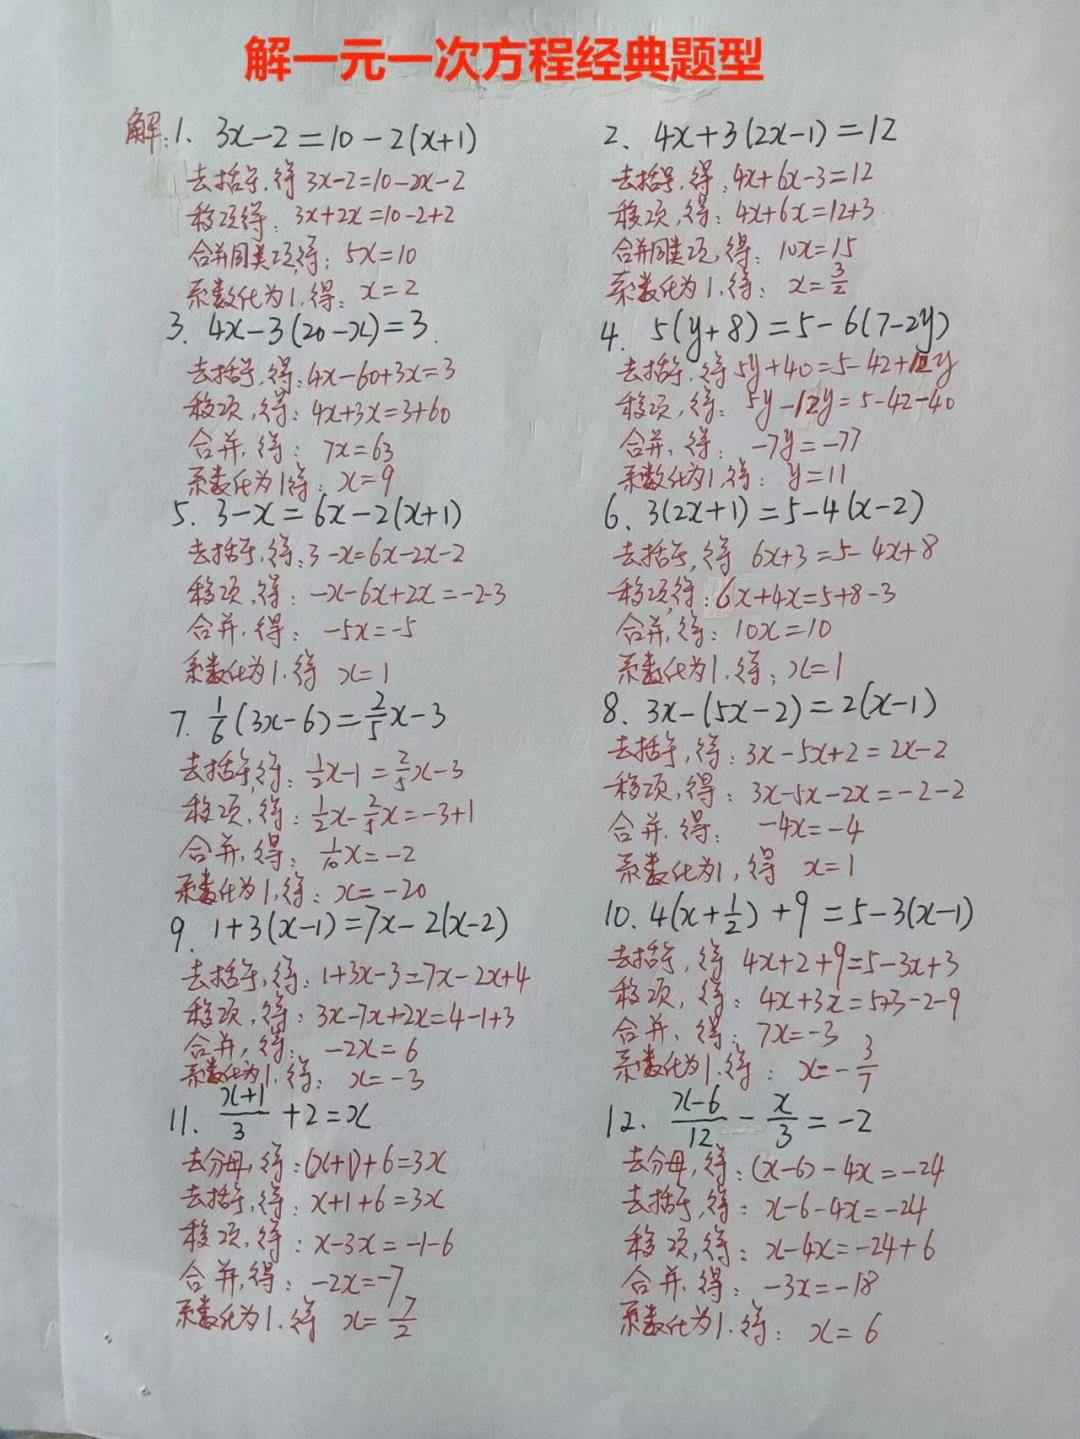 解一元一次方程经典题型
解:1. 3x-2=10-2(x+1)
去括号,得 3x-2=10-2x-2
移项得: 3x+2x=10-2+2
合并同类项,得: 5x=10
系数化为1,得: x=2
2. 4x+3(2x-1)=12
去括号,得:4x+6x-3=12
移项,得: 4x+6x=12+3
合并同类项,得: 10x=15
系数化为1,得: x=3/2
3. 4x-3(20-x)=3
去括号,得:4x-60+3x=3
移项,得: 4x+3x=3+60
合并,得: 7x=63
系数化为1得: x=9
4. 5(y+8)=5-6(7-2y)
去括号,得 5y+40=5-42+12y
移项,得: 5y-12y=5-42-40
合并,得: -7y=-77
系数化为1,得: y=11
5. 3-x=6x-2(x+1)
去括号,得:3-x=6x-2x-2
移项,得: -x-6x+2x=-2-3
合并,得: -5x=-5
系数化为1,得 x=1
6、3(2x+1)=5-4(x-2)
去括号,得 6x+3=5-4x+8
移项,得:6x+4x=5+8-3
合并,得: 10x=10
系数化为1,得: x=1
7. 1/6(3x-6)=2/5x-3
去括号,得: 1/2x-1=2/5x-3
移项,得: 1/2x-2/5x=-3+1
合并,得: 1/10x=-2
系数化为1,得: x=-20
8、3x-(5x-2)=2(x-1)
去括号,得: 3x-5x+2=2x-2
移项,得: 3x-5x-2x=-2-2
合并,得: -4x=-4
系数化为1,得 x=1
9. 1+3(x-1)=7x-2(x-2)
去括号,得: 1+3x-3=7x-2x+4
移项,得: 3x-7x+2x=4-1+3
合并,得: -2x=6
系数化为1,得: x=-3
10. 4(x+1/2)+9=5-3(x-1)
去括号,得 4x+2+9=5-3x+3
移项,得: 4x+3x=5+3-2-9
合并,得: 7x=-3
系数化为1,得: x=-3/7
11. (x+1)/3+2=x
去分母,得:(x+1)+6=3x
去括号,得: x+1+6=3x
移项,得: x-3x=-1-6
合并,得: -2x=-7
系数化为1,得 x=7/2
12. (x-6)/12-x/3=-2
去分母,得:(x-6)-4x=-24
去括号,得: x-6-4x=-24
移项,得: x-4x=-24+6
合并,得: -3x=-18
系数化为1,得: x=6